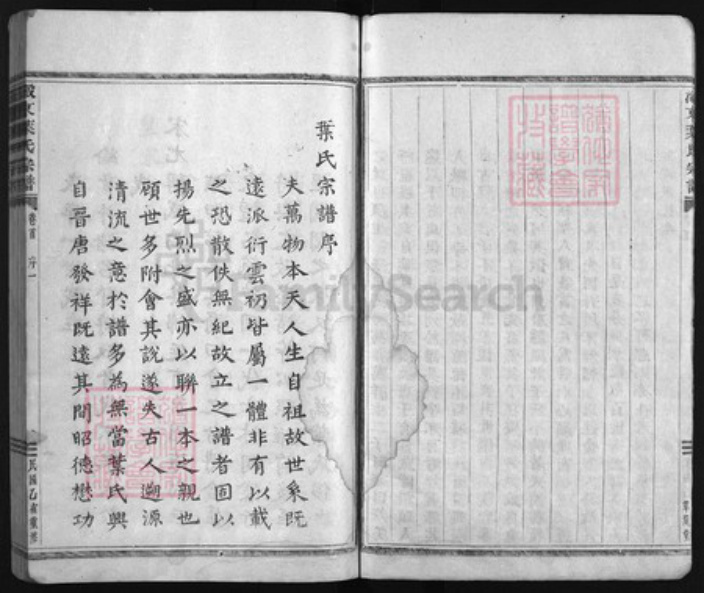 葉氏宗譜序
夫萬物本天人生自祖故世系既
遠派衍雲礽皆屬一體非有以載
之恐散佚無紀故立之譜者固以
揚先烈之盛亦以聯一本之親也
顧世多附會其說遂失古人遡源
清流之意於譜多為無當葉氏興
自晉唐發祥既遠其間昭德懋功
葉氏宗譜
卷首
序一
民國乙亥重修
FamilySearch